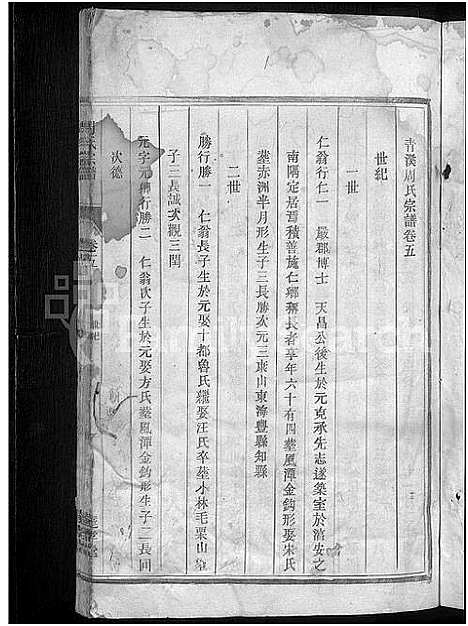 青溪周氏宗譜卷五
世紀
一世
仁翁行仁一 嚴郡博士 天昌公後生於元克承先志遂築室於淸安之
南隅定居焉積善施仁鄉稱長者享年六十有四塟風潭金鈎形娶宋氏
塟赤洲半月形生子三長勝次元三東山東海豐縣知縣
二世
勝行勝一 仁翁長子生於元娶十都魯氏繼娶汪氏卒塟小林毛栗山
子三長誠次觀三閏
元字元卿行勝二 仁翁次子生於元娶方氏塟風潭金鈎形生子二長回
次德
周氏宗譜
卷五
世紀